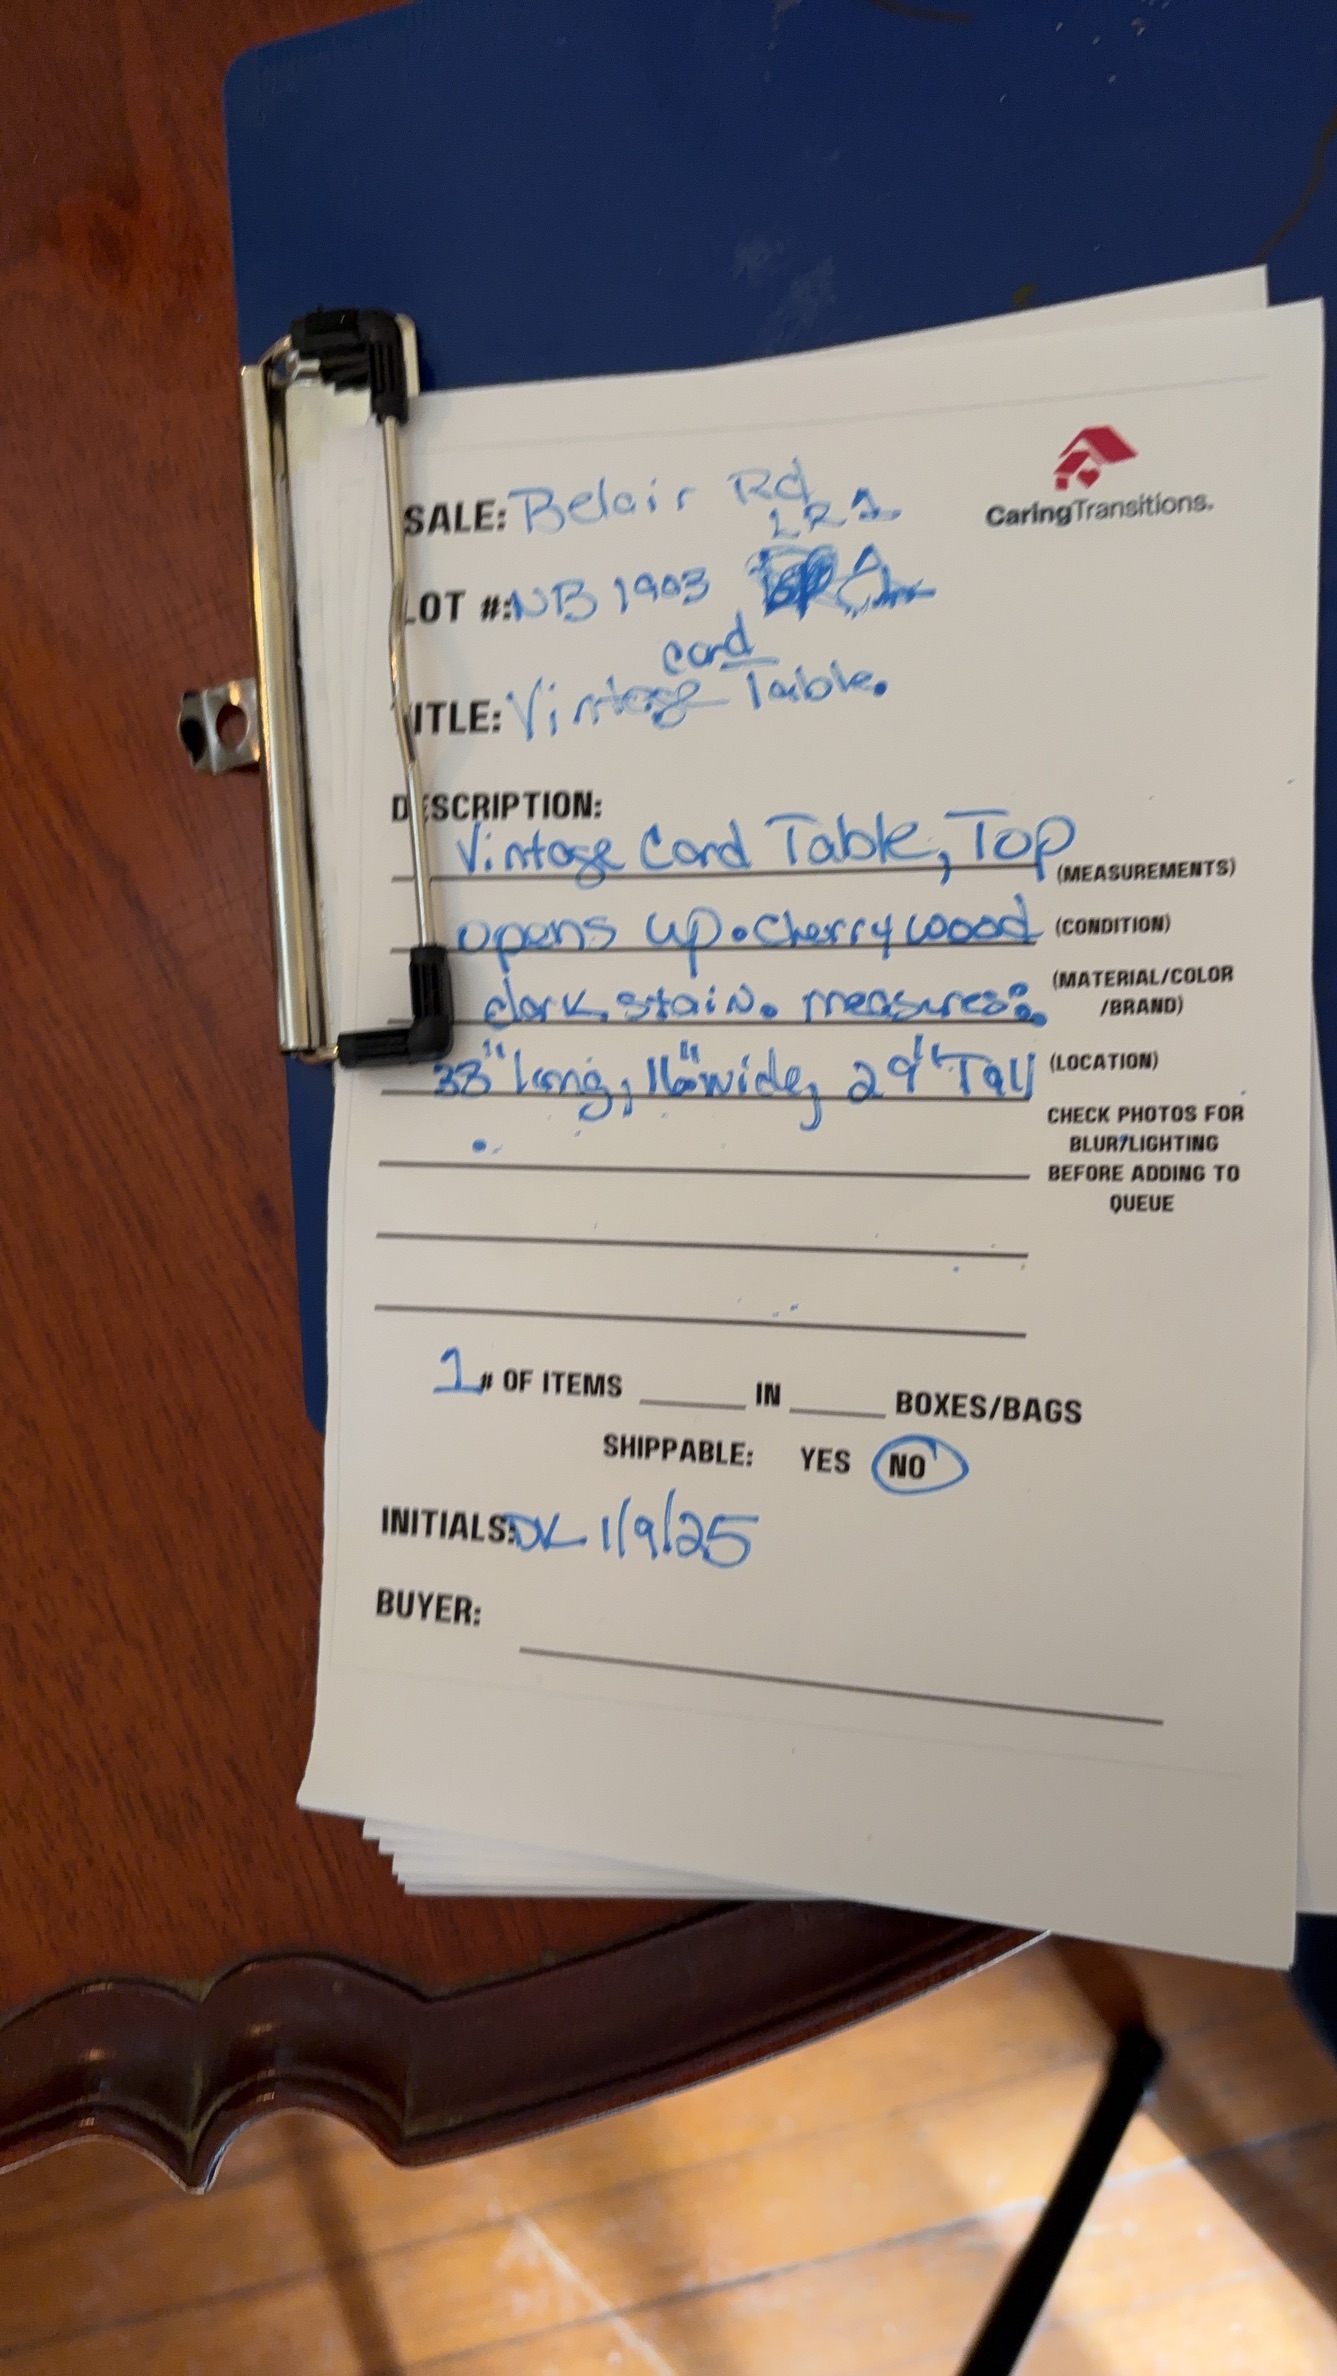 CaringTransitions.
SALE: Belair Rd
LR1
LOT #: NB 1903
card
TITLE: Vintage Table.
DESCRIPTION:
Vintage Card Table, Top
(MEASUREMENTS)
opens up. Cherry wood
(CONDITION)
dark stain. measures:
(MATERIAL/COLOR
/BRAND)
33" long, 16" wide, 29" Tall
(LOCATION)
CHECK PHOTOS FOR
BLUR/LIGHTING
BEFORE ADDING TO
QUEUE
1 # OF ITEMS IN BOXES/BAGS
SHIPPABLE: YES NO
INITIALS: DL 1/9/25
BUYER: